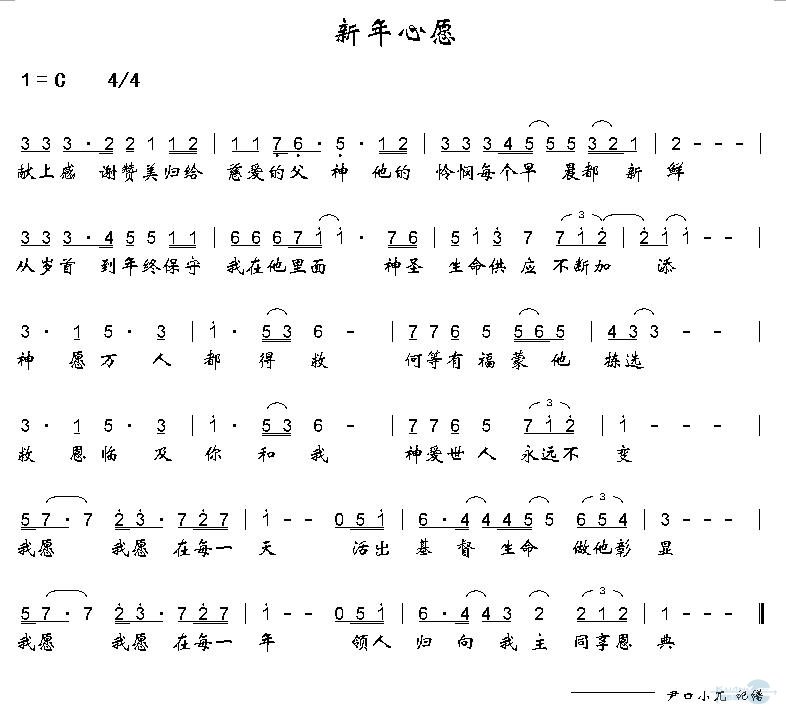 新年心愿
1=C 4/4
3 3 3 · 2 2 1 1 2 | 1 1 7 · 6 · 5 · 1 2 | 3 3 3 4 5 5 5 3 2 1 | 2 - - - |
献上感 谢赞美归给 慈爱的父 神 他的 怜悯每个早 晨都 新 鲜
3 3 3 · 4 5 5 1 1 | 6 6 6 7 1 1 · 7 6 | 5 1 3 7 7 1 2 | 2 1 1 - - |
从岁首 到年终保守 我在他里面 神圣 生命供应 不断加 添
3 · 1 5 · 3 | 1 · 5 3 6 - | 7 7 6 5 5 6 5 | 4 3 3 - - |
神 愿万 人 都 得 救 何等有 福 蒙 他 拣选
3 · 1 5 · 3 | 1 · 5 3 6 - | 7 7 6 5 7 1 2 | 1 - - - |
救 恩临 及 你 和 我 神爱世 人 永远不 变
5 7 · 7 2 3 · 7 2 7 | 1 - - 0 5 1 | 6 · 4 4 4 5 5 6 5 4 | 3 - - - |
我愿 我愿 在每一 天 活出 基 督 生命 做他彰 显
5 7 · 7 2 3 · 7 2 7 | 1 - - 0 5 1 | 6 · 4 4 3 2 2 1 2 | 1 - - -
我愿 我愿 在每一 年 领人 归 向 我 主 同享恩 典